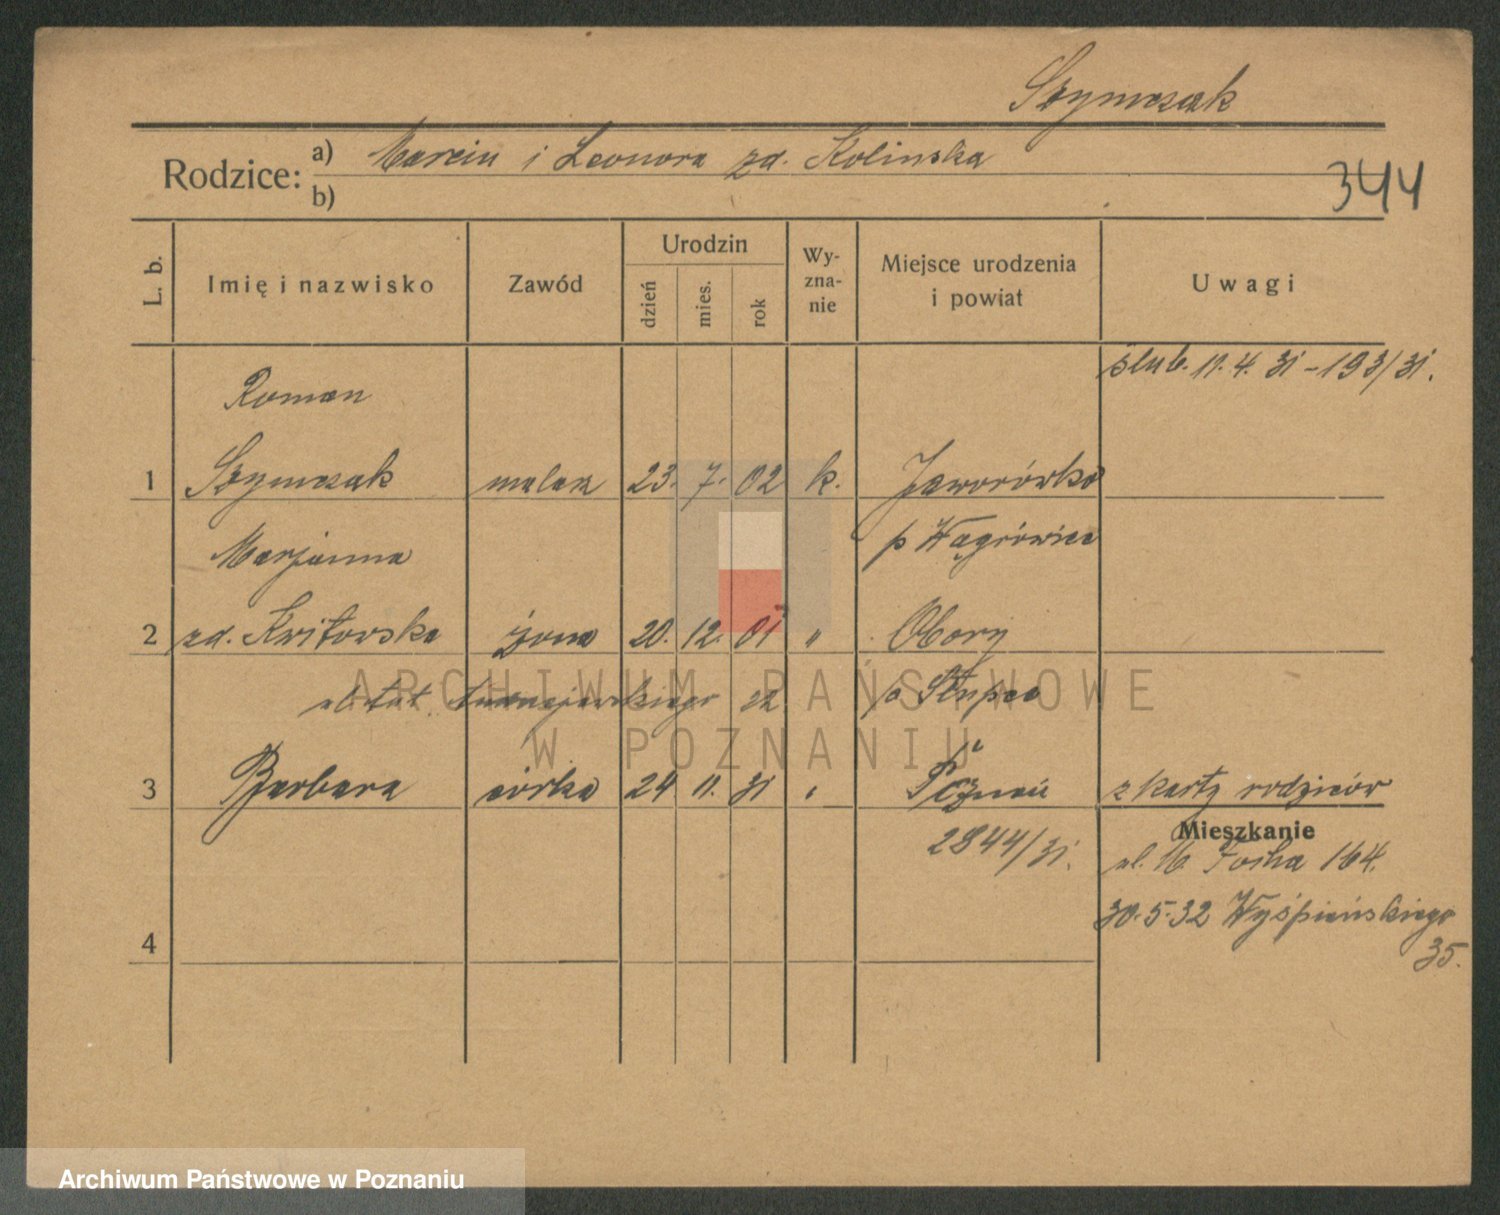 Szymczak
Rodzice: a) Marcin i Leonora zd. Kolinska
b)
344
L. b.
Imię i nazwisko
Zawód
Urodzin
dzień
mies.
rok
Wy-
zna-
nie
Miejsce urodzenia
i powiat
Uwagi
ślub. 11. 4. 31 – 193/31.
Roman
1 Szymczak malarz 23. 7. 02 k. Jaworówko
Marjanna p Wągrówiec
2 zd. Kwitowska żona 20. 12. 01 " Obory
22 p Słupca
3 Barbara córka 24 11. 31 " Poznań z karty rodziców
2844/31.
Mieszkanie
ul. M. Focha 164.
30.5.32 Wyśpieńskiego
35.
4
ARCHIWUM PAŃSTWOWE
W POZNANIU
Archiwum Państwowe w Poznaniu